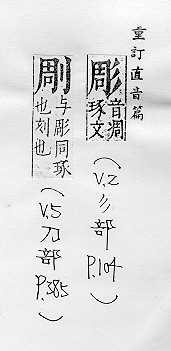 重訂直音篇
彫
音凋
琢文
(V.2 彡部 P.104)
剮
与彫同琢
也刻也
(V.5 刀部 P.385)